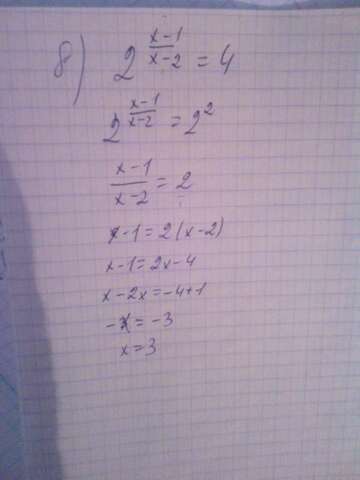 8) 2^{\frac{x-1}{x-2}} = 4
2^{\frac{x-1}{x-2}} = 2^2
\frac{x-1}{x-2} = 2
x-1=2(x-2)
x-1=2x-4
x-2x=-4+1
-x=-3
x=3